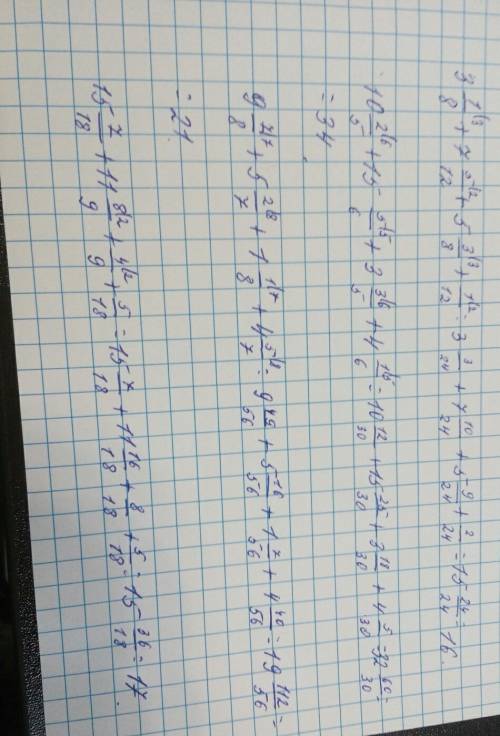 3 1/8 + 7 5/12 + 5 3/8 + 1/12 = 3 3/24 + 7 10/24 + 5 9/24 + 2/24 = 15 24/24 = 16.
10 2/5 + 15 5/6 + 3 3/5 + 4 1/6 = 10 12/30 + 15 25/30 + 3 18/30 + 4 5/30 = 32 60/30 =
= 34.
9 7/8 + 5 2/7 + 1 1/8 + 4 5/7 = 9 49/56 + 5 16/56 + 1 7/56 + 4 40/56 = 19 112/56 =
= 21.
15 7/18 + 11 8/9 + 4/9 + 5/18 = 15 7/18 + 11 16/18 + 8/18 + 5/18 = 15 36/18 = 17.